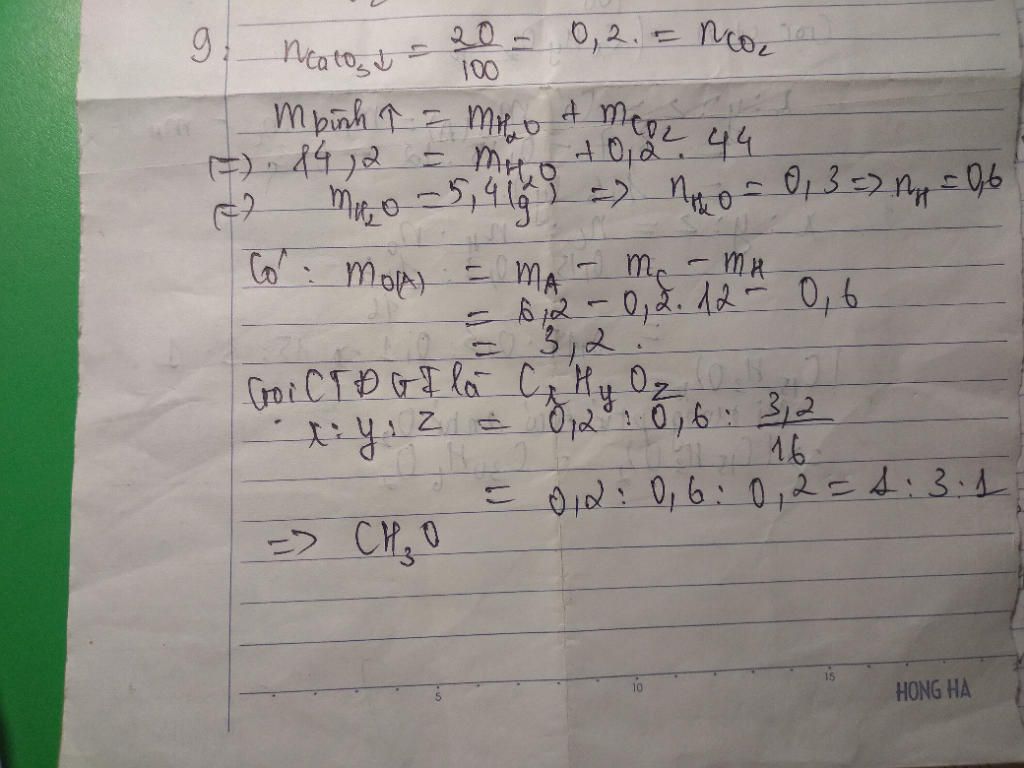 9. nCaCO₃↓ = 20/100 = 0,2. = nCO₂
mbình ↑ = mH₂O + mCO₂
(=) 14,2 = mH₂O + 0,2. 44
(=) mH₂O = 5,4 (g) => nH₂O = 0,3 => nH = 0,6
Có : mO(A) = mA - mC - mH
= 6,2 - 0,2. 12 - 0,6
= 3,2.
Gọi CTĐGI là CxHyOz
x : y : z = 0,2 : 0,6 : 3,2/16
= 0,2 : 0,6 : 0,2 = 1 : 3 : 1
=> CH₃O
5 10 15
HONG HA